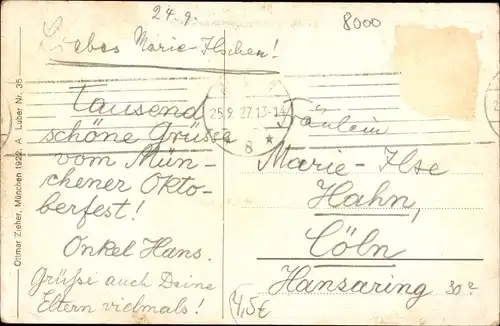 24.9.
8000
Liebes Marie-Ilschen!
Tausend
schöne Grüsse
vom Mün-
chener Okto-
berfest!
Onkel Hans.
Grüsse auch Deine
Eltern vielmals!
25.9.27.13-14
8 *
Fräulein
Marie-Ilse
Hahn,
Cöln
Hansaring 30
4,5€
Ottmar Zieher, München 1922. A Luber Nr. 35